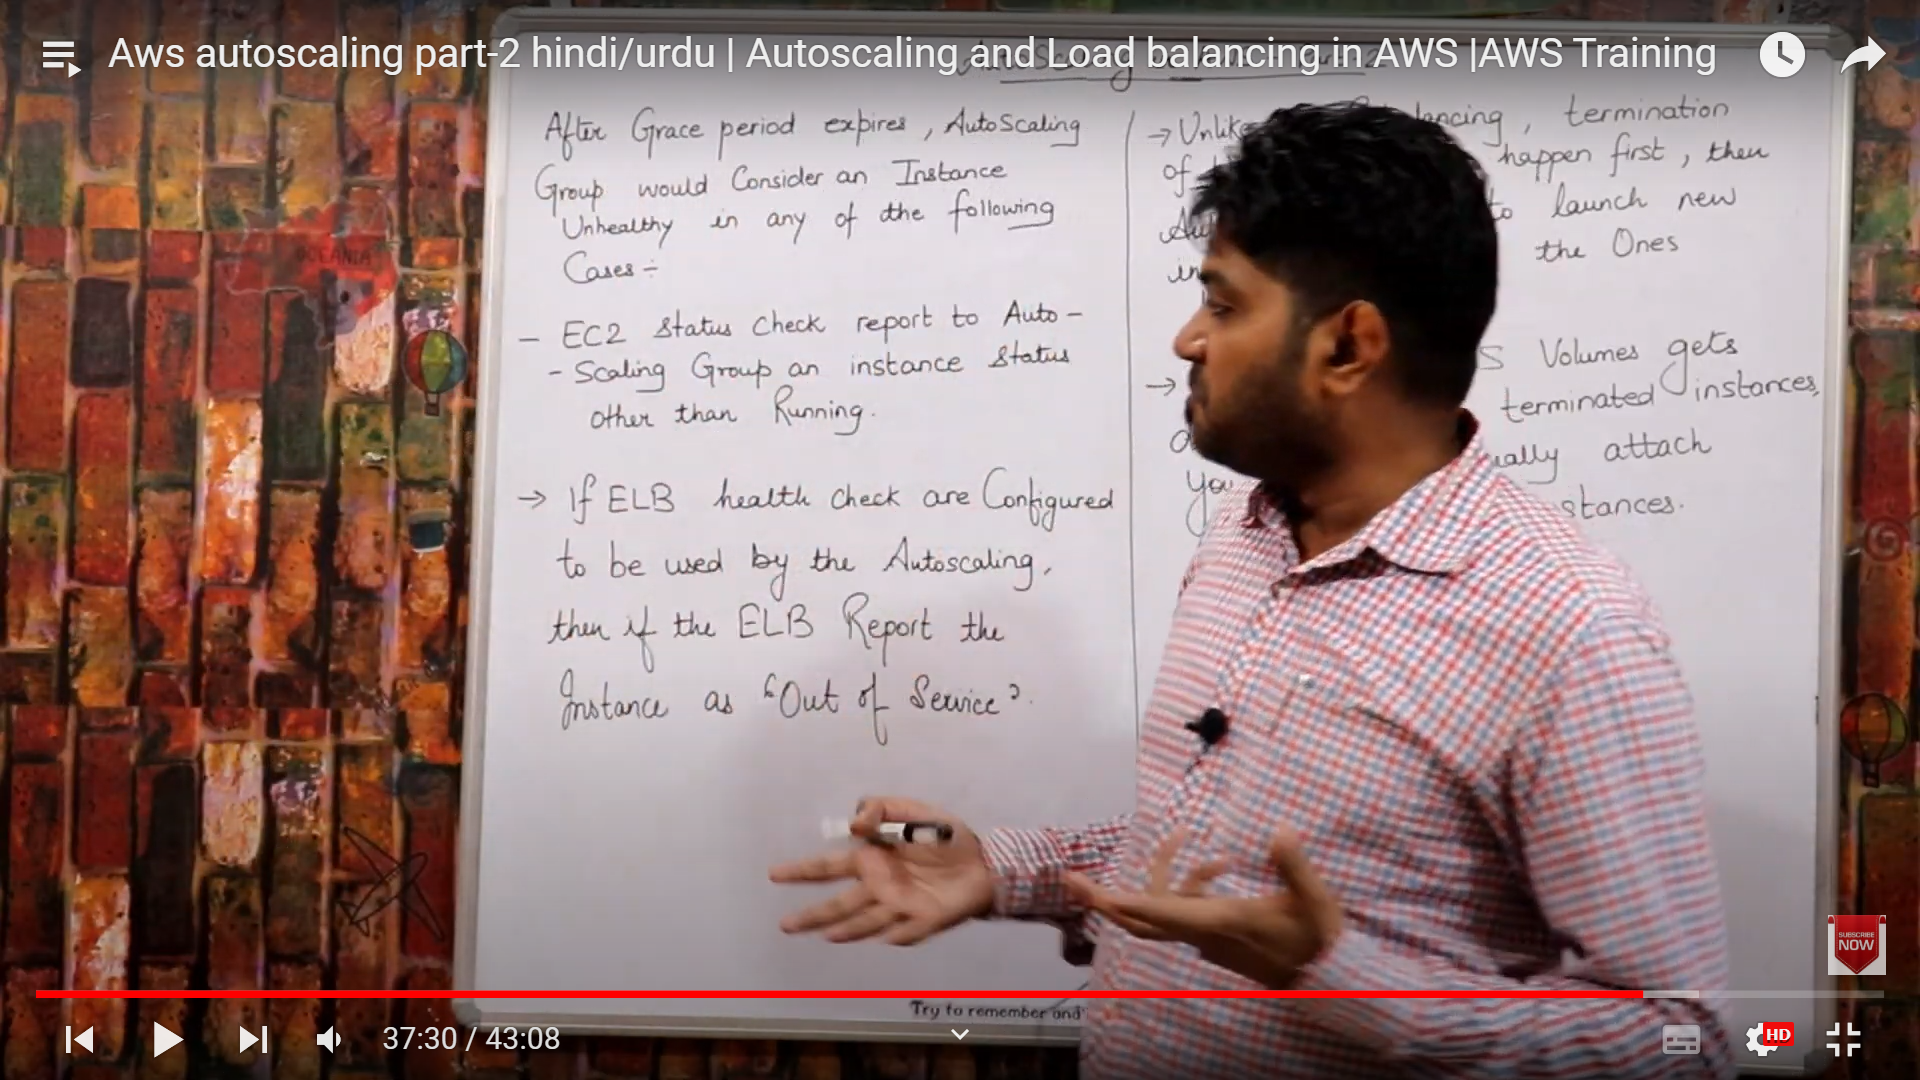 Aws autoscaling part-2 hindi/urdu | Autoscaling and Load balancing in AWS |AWS Training
After Grace period expires, AutoScaling
Group would Consider an Instance
Unhealthy in any of the following
Cases :-
- EC2 Status Check report to Auto-
- Scaling Group an instance Status
other than Running.
→ If ELB health check are Configured
to be used by the Autoscaling,
then if the ELB Report the
Instance as "Out of Service".
→ Unlike termination
of happen first, then
to launch new
in the Ones
→ Volumes gets
terminated instances,
attach
You
OCEANIA
Try to remember and
SUBSCRIBE
NOW
37:30 / 43:08
HD